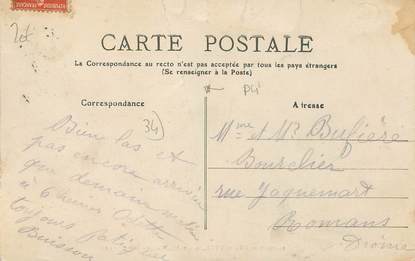 CARTE POSTALE
La Correspondance au recto n'est pas acceptée par tous les pays étrangers
(Se renseigner à la Poste)
Correspondance
Adresse
34
Bien las et
pas encore
que demain
à 6
toujours
Buisson
Mme et Mr
Bourrelier
rue Jaquemart
Romans
Drôme